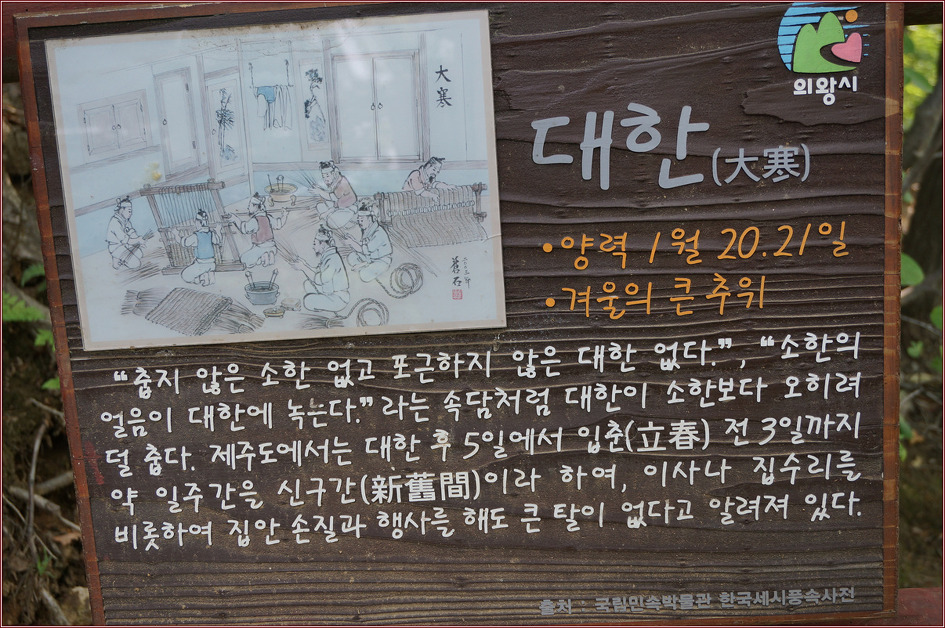 大寒
의왕시
대한(大寒)
•양력 1월 20.21일
•겨울의 큰 추위
“춥지 않은 소한 없고 포근하지 않은 대한 없다.”, “소한의
얼음이 대한에 녹는다.”라는 속담처럼 대한이 소한보다 오히려
덜 춥다. 제주도에서는 대한 후 5일에서 입춘(立春) 전 3일까지
약 일주간을 신구간(新舊間)이라 하여, 이사나 집수리를
비롯하여 집안 손질과 행사를 해도 큰 탈이 없다고 알려져 있다.
출처 : 국립민속박물관 한국세시풍속사전